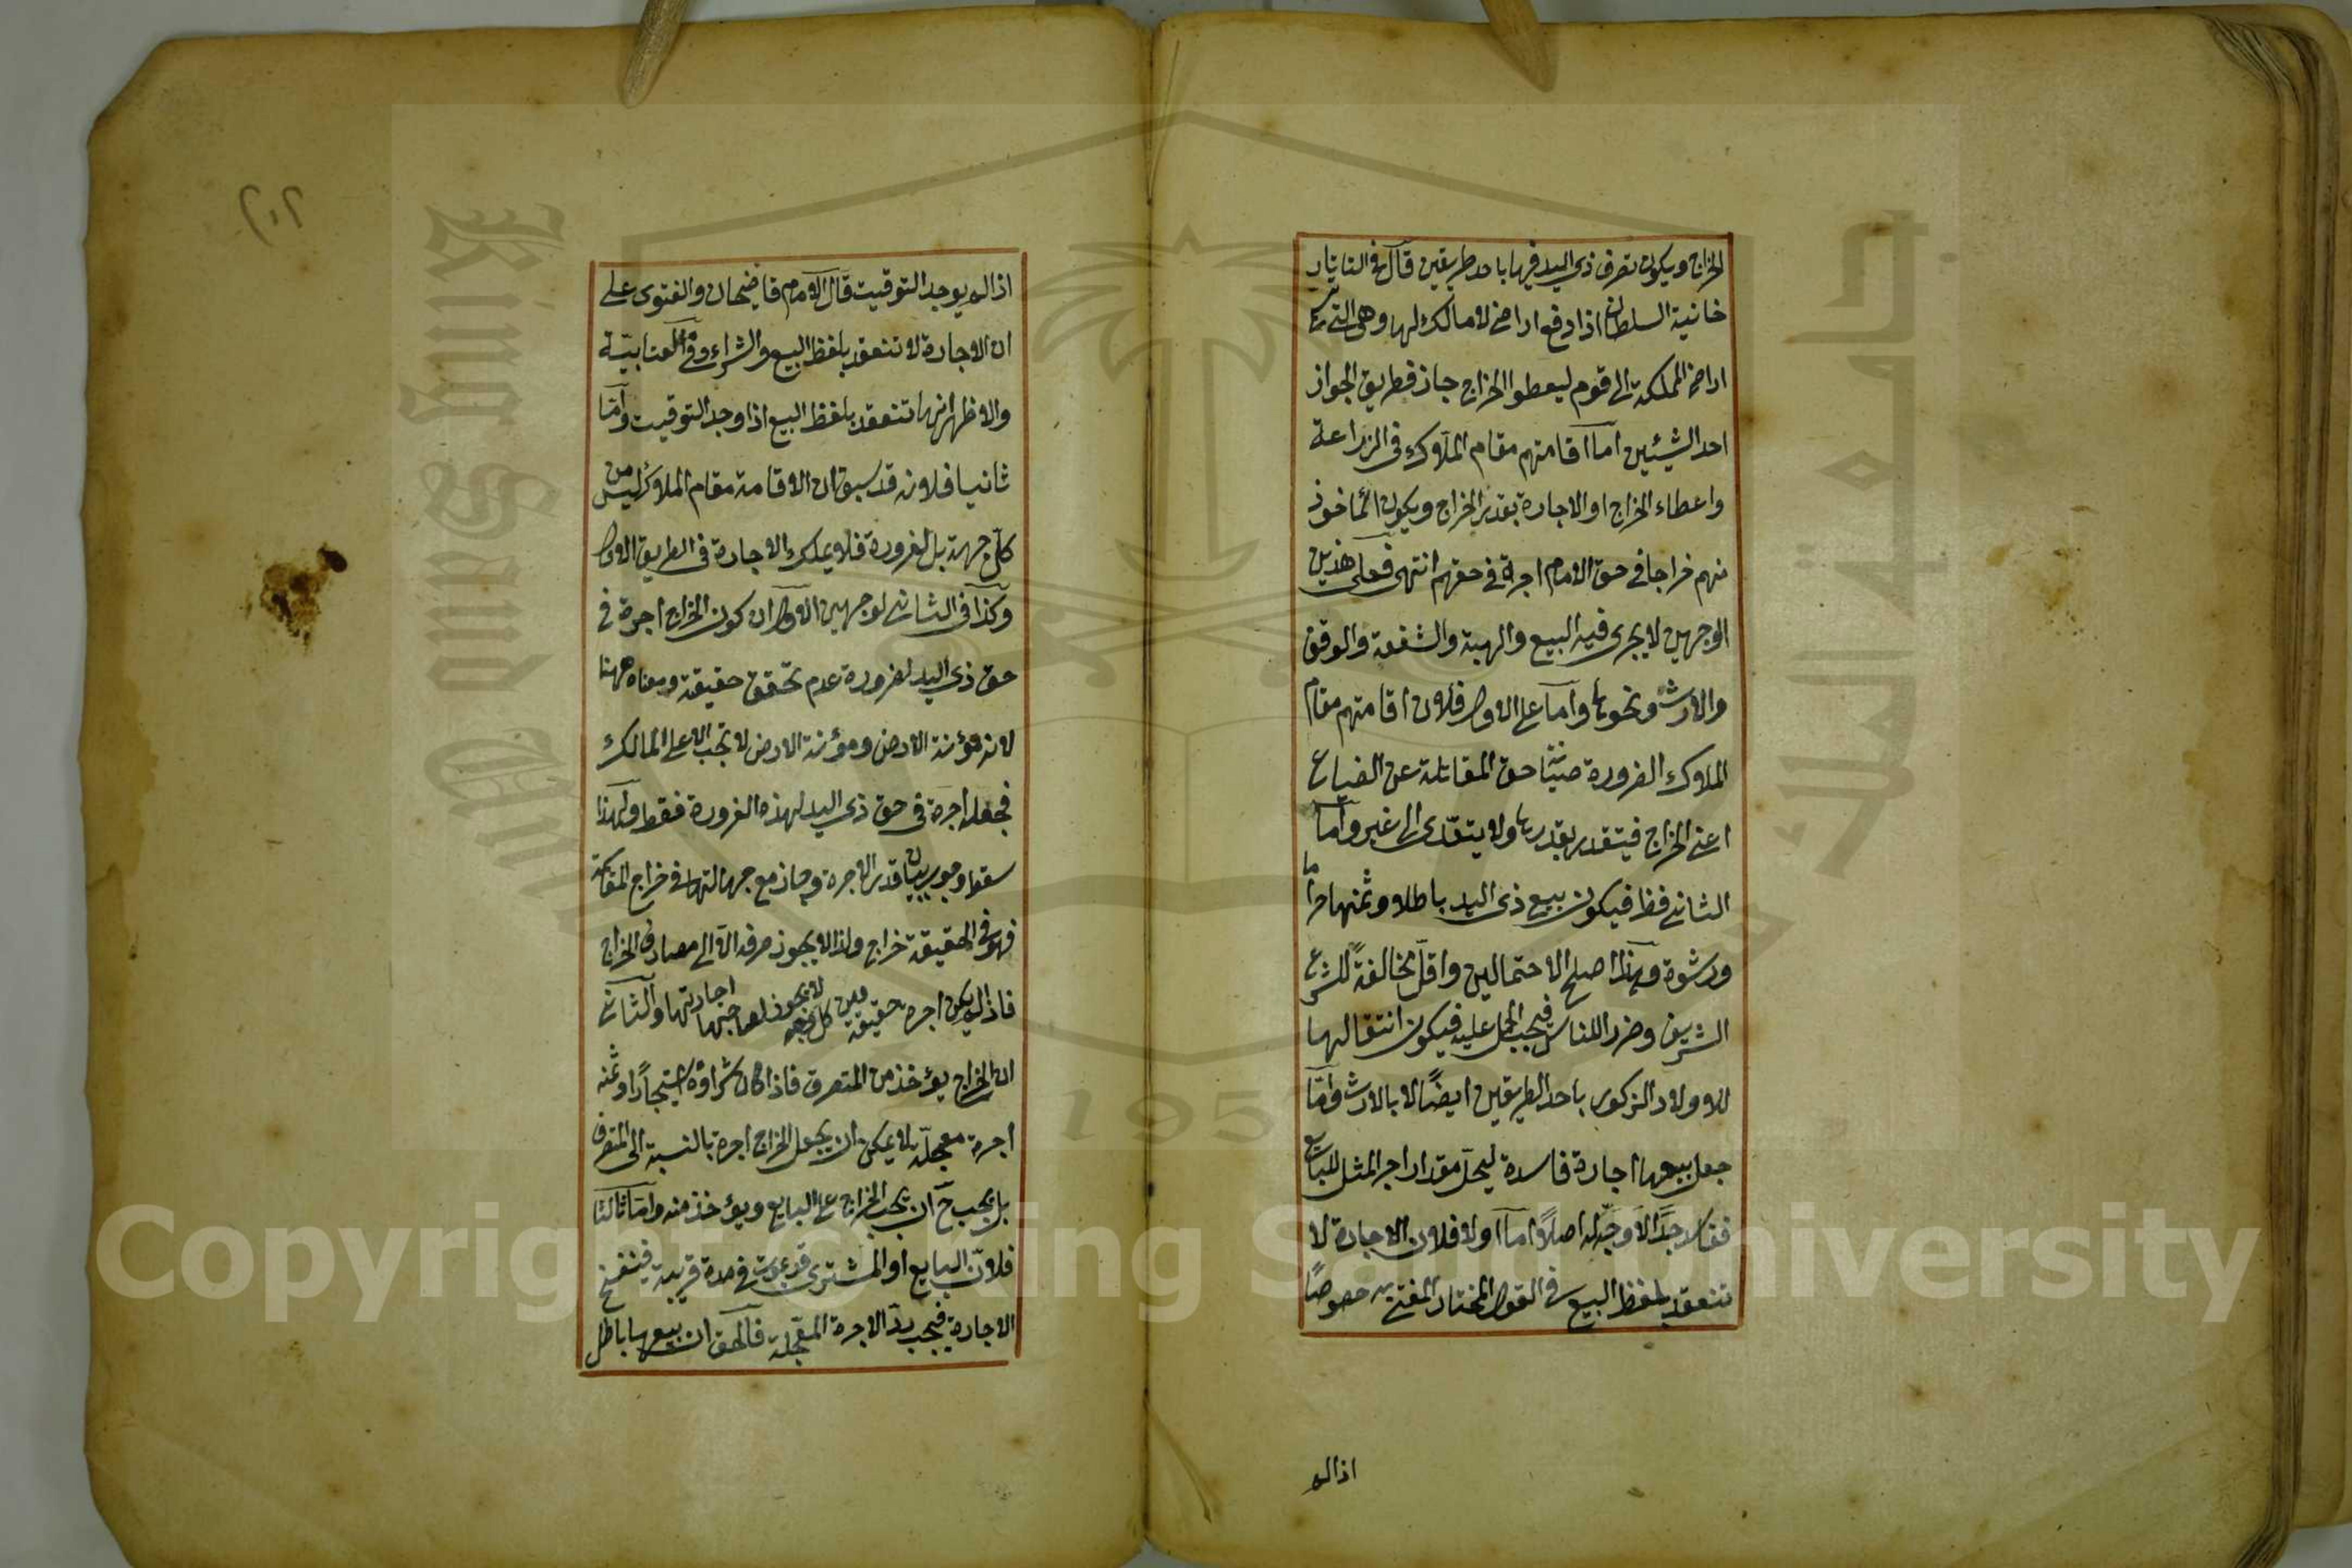 الخراج ويكون تصرف ذى اليد فيها باحد طريقين قال فى التاتار
خانية السلطان اذا دفع اراضى لا مالك لها وهى التى تسمى
اراضى المملكة الى قوم ليعطوا الخراج جاز فطريق الجواز
احد الشيئين اما اقامتهم مقام الملاك فى الزراعة
واعطاء الخراج او الاجارة بقدر الخراج ويكون المأخوذ
منهم خراجا فى حق الامام اجرة فى حقهم انتهى فعلى هذين
الوجهين لا يجرى فيه البيع والهبة والشفعة والوقف
والارث ونحوها واما على الاول فلان اقامتهم مقام
الملاك الضرورة صيانة حق المقاتلة عن الضياع
اعنى الخراج فيتقدر بقدرها ولا يتعدى الى غير واما
الثانى فظ فيكون بيع ذى اليد باطلا وثمنها حراما
ورشوة وهذا اصلح الاحتمالين واقل مخالفة للشرع
الشريف وضرر الناس فيجب الحمل عليه فيكون انتقالها
للاولاد الذكور باحد الطريقين ايضًا لا بالارث واما
جعل بيعها اجارة فاسدة ليحل مقدار اجر المثل للبائع
جدًّا لا وجه له اصلًا اما اولا فلان الاجارة لا
تنعقد بلفظ البيع فى القول المختار المفتى به خصوصًا
اذا لم
٢٠٢
اذا لم يوجد التوقيت قال الامام قاضيخان والفتوى على
ان الاجارة لا تنعقد بلفظ البيع والشراء وفى العتابية
والاظهر انها تنعقد بلفظ البيع اذا وجد التوقيت واما
ثانيا فلانه قد سبق ان الاقامة مقام الملاك ليس من
كل جهة بل لضرورة فلا يملك الاجارة فى الطريق الاول
وكذا فى الثانى لوجهين الاول ان كون الخراج اجرة فى
حق ذى اليد لضرورة عدم تحقق حقيقة ومعناه ههنا
لانه مؤنة الارض ومؤنة الارض لا تجب الا على المالك
فجعل اجرة فى حق ذى اليد لهذه الضرورة فقط ولهذا
سقط وجوب بيان قدر الاجرة وجاز مع جهالتها فى خراج المقاسمة
فهو فى الحقيقة خراج ولذا لا يجوز صرفه الا الى مصارف الخراج
فاذا لم يكن اجرة حقيقة ومن كل وجه لا يجوز لصاحبها اجارتها والثانى
ان الخراج يؤخذ من المتصرف فاذا كان شراؤه استيجارًا وثمنه
اجرة معجلة بلا يمكن ان يجعل الخراج اجرة بالنسبة الى المتصرف
بل يجب ح ان يجب الخراج على البايع ويؤخذ منه واما ثالثا
فلان البايع او المشترى قد يموت فى مدة قريبة فينفسخ
الاجارة فيجب رد الاجرة المعجلة فالحق ان بيعها باطل
Copyright © King Saud University
King Saud University
جامعة الملك سعود
1957